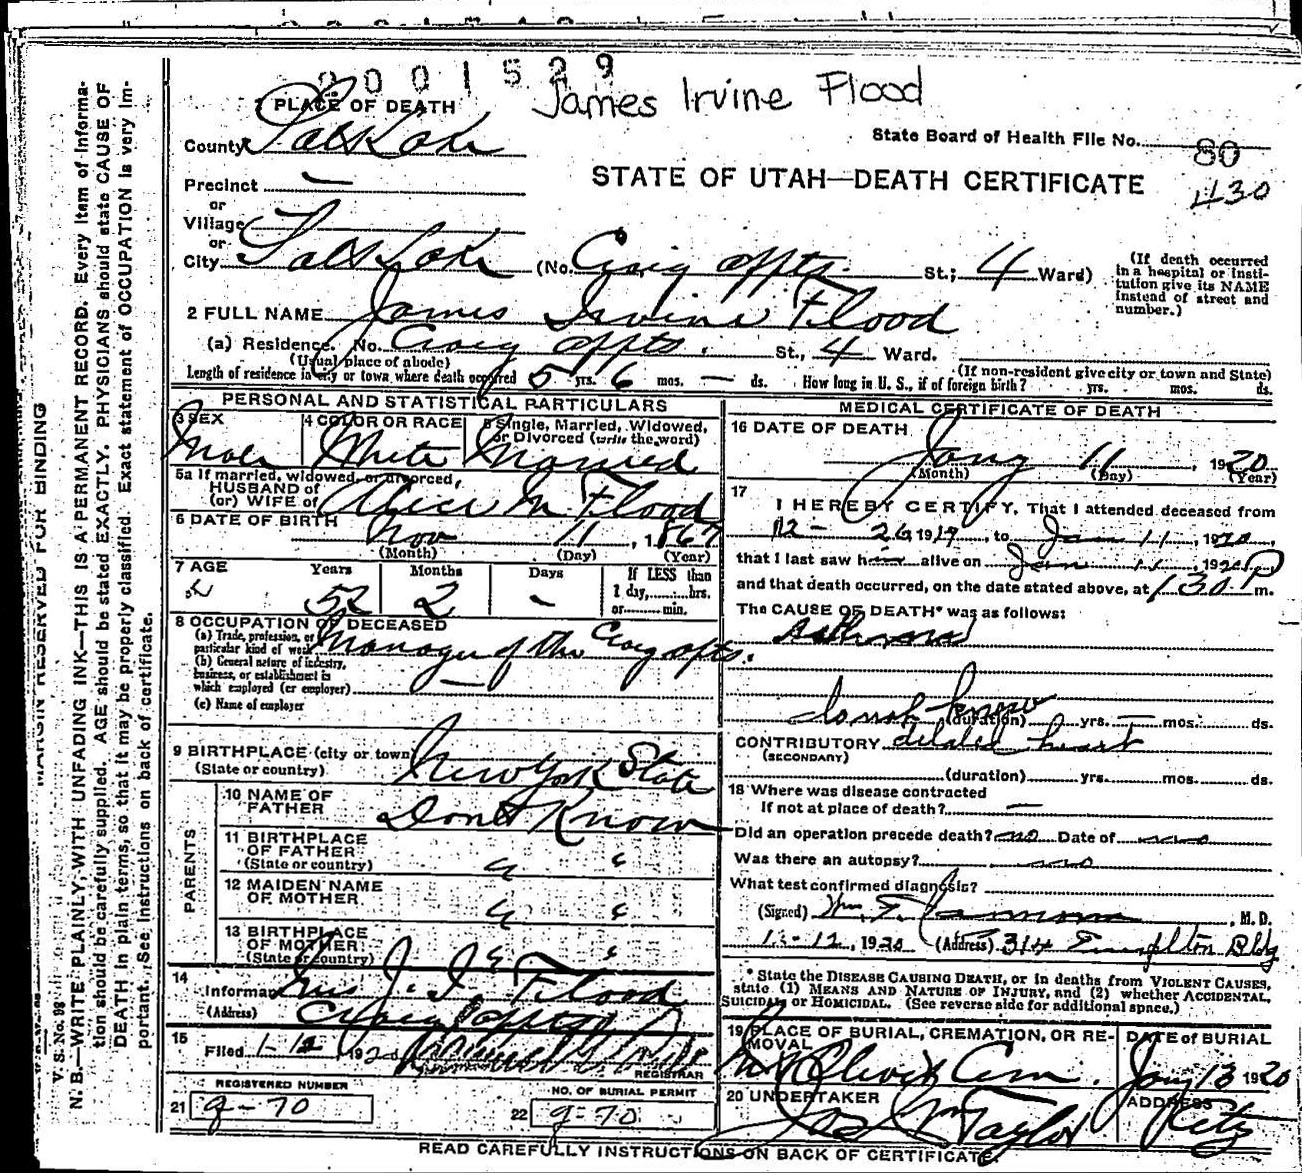 2001529
James Irvine Flood
1 PLACE OF DEATH
State Board of Health File No. 80
County Salt Lake
430
STATE OF UTAH—DEATH CERTIFICATE
Precinct —
or
Village
or
City Salt Lake (No. Craig Appts. St.; 4 Ward)
(If death occurred in a hospital or institution give its NAME instead of street and number.)
2 FULL NAME James Irvine Flood
(a) Residence. No. Craig Appts. St., 4 Ward.
(Usual place of abode) (If non-resident give city or town and State)
Length of residence in city or town where death occurred 5 yrs. 6 mos. — ds. How long in U. S., if of foreign birth? yrs. mos. ds.
PERSONAL AND STATISTICAL PARTICULARS
3 SEX
Male
4 COLOR OR RACE
White
5 Single, Married, Widowed, or Divorced (write the word)
Married
5a If married, widowed, or divorced,
HUSBAND of
(or) WIFE of Alice M Flood
6 DATE OF BIRTH Nov 11, 1867
(Month) (Day) (Year)
7 AGE Years Months Days If LESS than
52 2 - 1 day, hrs.
or min.
8 OCCUPATION OF DECEASED
(a) Trade, profession, or
particular kind of work Manager of the Craig Appts.
(b) General nature of industry,
business, or establishment in
which employed (or employer) —
(c) Name of employer
9 BIRTHPLACE (city or town)
(State or country) New York State
PARENTS
10 NAME OF
FATHER Dont Know
11 BIRTHPLACE
OF FATHER
(State or country) " "
12 MAIDEN NAME
OF MOTHER " "
13 BIRTHPLACE
OF MOTHER
(State or country) " "
14
Informant Mrs J. I. Flood
(Address) Craig Appts
15
Filed 1-12 1920
REGISTRAR
REGISTERED NUMBER
21 g-70
NO. OF BURIAL PERMIT
22 g-70
MEDICAL CERTIFICATE OF DEATH
16 DATE OF DEATH
Jany 11, 1920
(Month) (Day) (Year)
17
I HEREBY CERTIFY, That I attended deceased from
12 - 26 1919, to Jan 11, 1920,
that I last saw him alive on Jan 11, 1920
and that death occurred, on the date stated above, at 1.30 P m.
The CAUSE OF DEATH* was as follows:
Asthma
do not know
(duration) yrs. — mos. ds.
CONTRIBUTORY dilated heart
(SECONDARY)
(duration) yrs. mos. ds.
18 Where was disease contracted
If not at place of death? —
Did an operation precede death? no Date of
Was there an autopsy? no
What test confirmed diagnosis?
(Signed) Wm. F. M.D.
1-12, 1920 (Address) 314 Templeton Bldg
* State the DISEASE CAUSING DEATH, or in deaths from VIOLENT CAUSES,
state (1) MEANS AND NATURE OF INJURY, and (2) whether ACCIDENTAL,
SUICIDAL or HOMICIDAL. (See reverse side for additional space.)
19 PLACE OF BURIAL, CREMATION, OR RE-
MOVAL
Mt Olivet Cem.
DATE of BURIAL
Jany 13 1920
20 UNDERTAKER
Jos Wm Taylor
ADDRESS
City
READ CAREFULLY INSTRUCTIONS ON BACK OF CERTIFICATE.
MARGIN RESERVED FOR BINDING
V. S. No. 98
N. B.—WRITE PLAINLY WITH UNFADING INK—THIS IS A PERMANENT RECORD. Every item of informa-
tion should be carefully supplied. AGE should be stated EXACTLY. PHYSICIANS should state CAUSE OF
DEATH in plain terms, so that it may be properly classified. Exact statement of OCCUPATION is very im-
portant. See instructions on back of certificate.